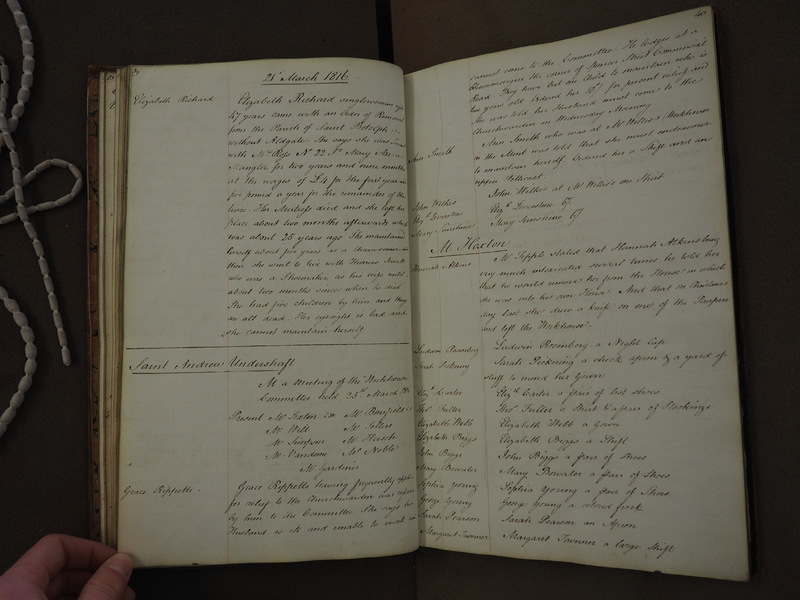 39
21st March 1816
Elizabeth Richard
Elizabeth Richard singlewoman aged
47 years came with an Order of Removal
from the Parish of Saint Botolph
without Aldgate. She says she was
with Mrs Ross No 22 St Mary Axe a
Mangler for two years and nine months
at the wages of £4 for the first year and
five pound a year for the remainder of the
time. Her Mistress died and she left her
place about two months afterwards which
was about 25 years ago She maintained
herself about five years as a Chairwoman
then she went to live with Thomas
who was a Shoemaker, as his wife until
about two months since when he died
She had five children by him and they
are all dead. Her eyesight is bad and
she cannot maintain herself
Saint Andrew Undershaft
At a Meeting of the Workhouse
Committee held 25th March 1816
Present Mr Sexton CW Mr Bousfield
Mr Wilt Mr Sellers
Mr Simpson Mr
Mr Vandome Mr Noble
Mr Gardiner
Grace Rippetts
Grace Rippetts having frequently applied
for relief to the Churchwarden was
by him to the Committee She says her
Husband is ill and unable to work
40
cannot come to the Committee. He lodges at a
the corner of Street Commercial
Road. They have but one Child to maintain who is
two years old Ordered her 10/- for present relief and
she was told her Husband must come to the
Churchwarden on Wednesday Morning
Ann Smith
Ann Smith who was at Mr Willis's Workhouse
in the Mint was told that she must endeavour
to maintain herself. Ordered her a Shift and an
upper Petticoat
John Wilkes
John Wilkes at Mr Willis's one Shirt
Elizth
Elizth 6/
Mary
Mary 6/
Mr Haxton
Hannah Atkins
Mr Sipple stated that Hannah Atkins being
very much intoxicated several times he told her
that he would remove her from the House in which
she was into his own House. And that on Christmas
day last she drew a knife on one of the Paupers
and left the Workhouse.
Ludwin Rosenberg
Ludwin Rosenberg a Night Cap
Sarah Pickering
Sarah Pickering a check apron & a yard of
stuff to mend her Gown
Elizth Carter
Elizth Carter a pair of list shoes
Thos Fuller
Thos Fuller a Shirt & a pair of Stockings
Elizabeth Webb
Elizabeth Webb a Gown
Elizabeth Biggs
Elizabeth Biggs a Shift
John Biggs
John Biggs a pair of Shoes
Mary Bowater
Mary Bowater a pair of Shoes
Sophia Young
Sophia Young a pair of Shoes
George Young
George Young a colored frock
Sarah Pearson
Sarah Pearson an Apron
Margaret Tavenor
Margaret Tavenor a large Shift